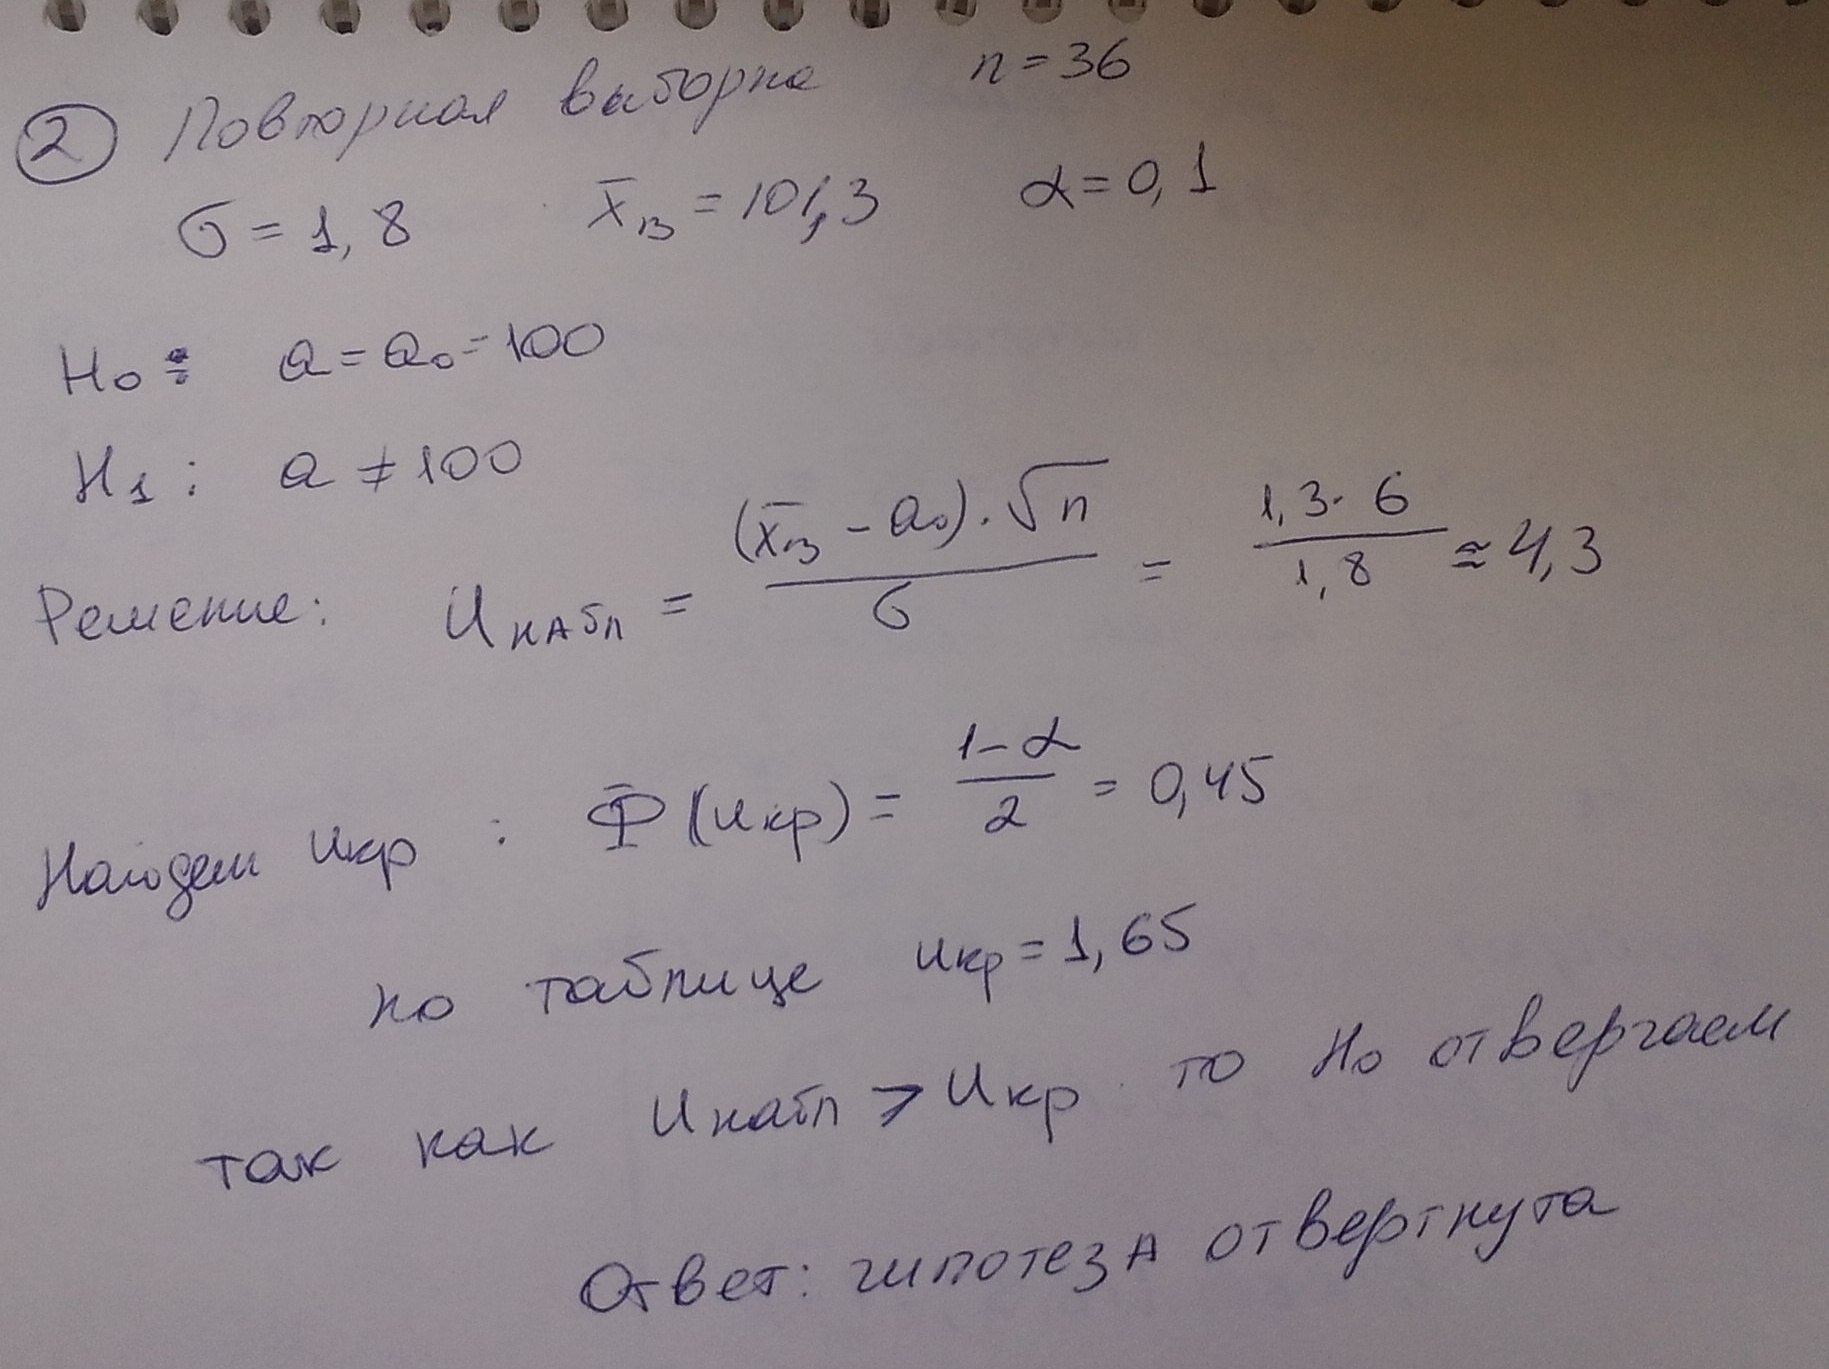 2 Повторная выборка n = 36
σ = 1,8 x̄в = 101,3 α = 0,1
H₀ : a = a₀ = 100
H₁ : a ≠ 100
Решение: Uнабл = (x̄в - a₀) · √n / σ = 1,3 · 6 / 1,8 ≈ 4,3
Найдем uкр : Φ(uкр) = 1-α / 2 = 0,45
по таблице uкр = 1,65
так как Uнабл > Uкр то H₀ отвергаем
Ответ: гипотеза отвергнута